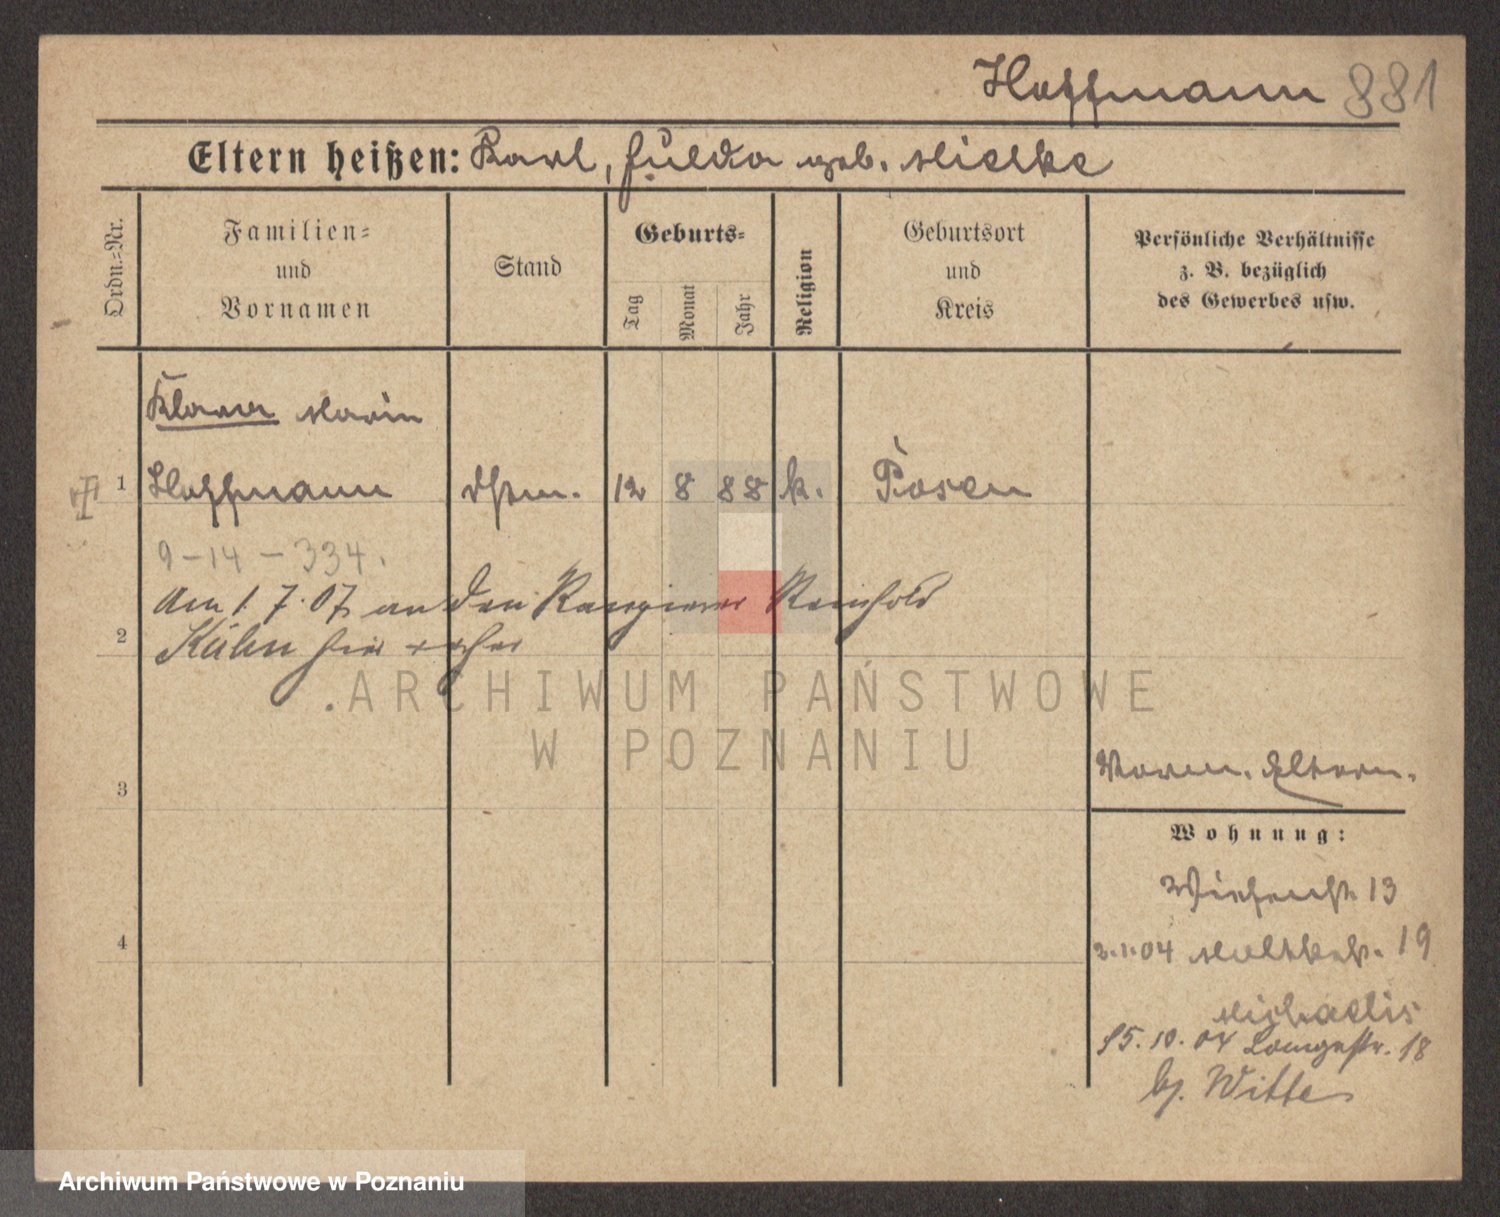 Hoffmann 881
Eltern heißen: Karl, Hulda geb. Mielke
Ordn.-Nr.
Familien-
und
Vornamen
Stand
Geburts-
Tag
Monat
Jahr
Religion
Geburtsort
und
Kreis
Persönliche Verhältnisse
z. B. bezüglich
des Gewerbes usw.
Klara Maria
1 Hoffmann 12 8 88 k. Posen
9-14-334.
Am 1.7.07 an den Rangierer Reinhold
2 Kühn hier
ARCHIWUM PAŃSTWOWE
W POZNANIU
3
Eltern.
Wohnung:
Wiesenstr. 13
4
2.1.04 Moltkestr. 19
Michaelis
15.10.04 Langestr. 18
bj. Witte
Archiwum Państwowe w Poznaniu